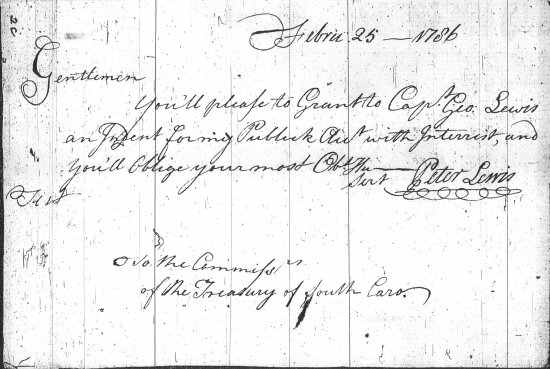 Febru 25 — 1786
Gentlemen
You'll please to Grant to Capt. Geo. Lewis
an Indent for my Publick Acct with Interrist, and
You'll Oblige your most Obt Hu
Sert Peter Lewis
Test
To the Commissrs
of the Treasury of South Caro.